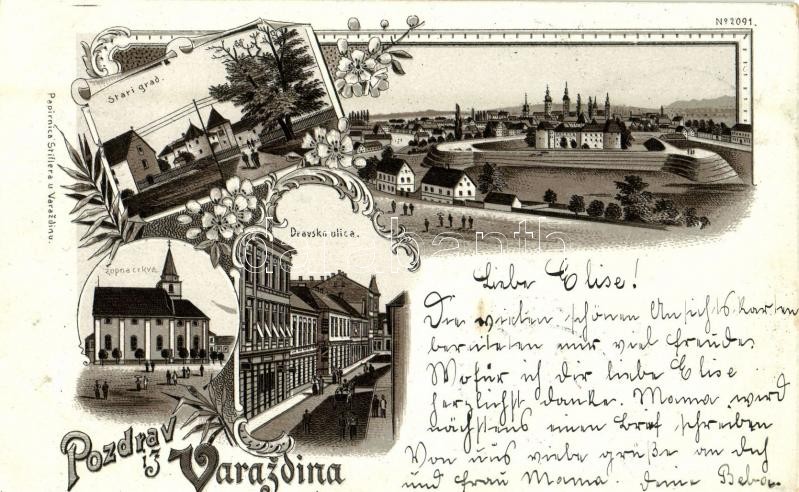 No 2091.
Stari grad.
Papirnica Stiflera u Varaždinu.
Dravska ulica.
Župna crkva.
Liebe Elise!
Die vielen schönen Ansichtskarten
bereiteten mir viel freude.
Wofür ich der liebe Elise
herzlichst danke. Mama wird
nächstens einen Brief schreiben
Von uns viele grüße an dich
und frau Mama. deine Beba.
Pozdrav
iz
Varaždina